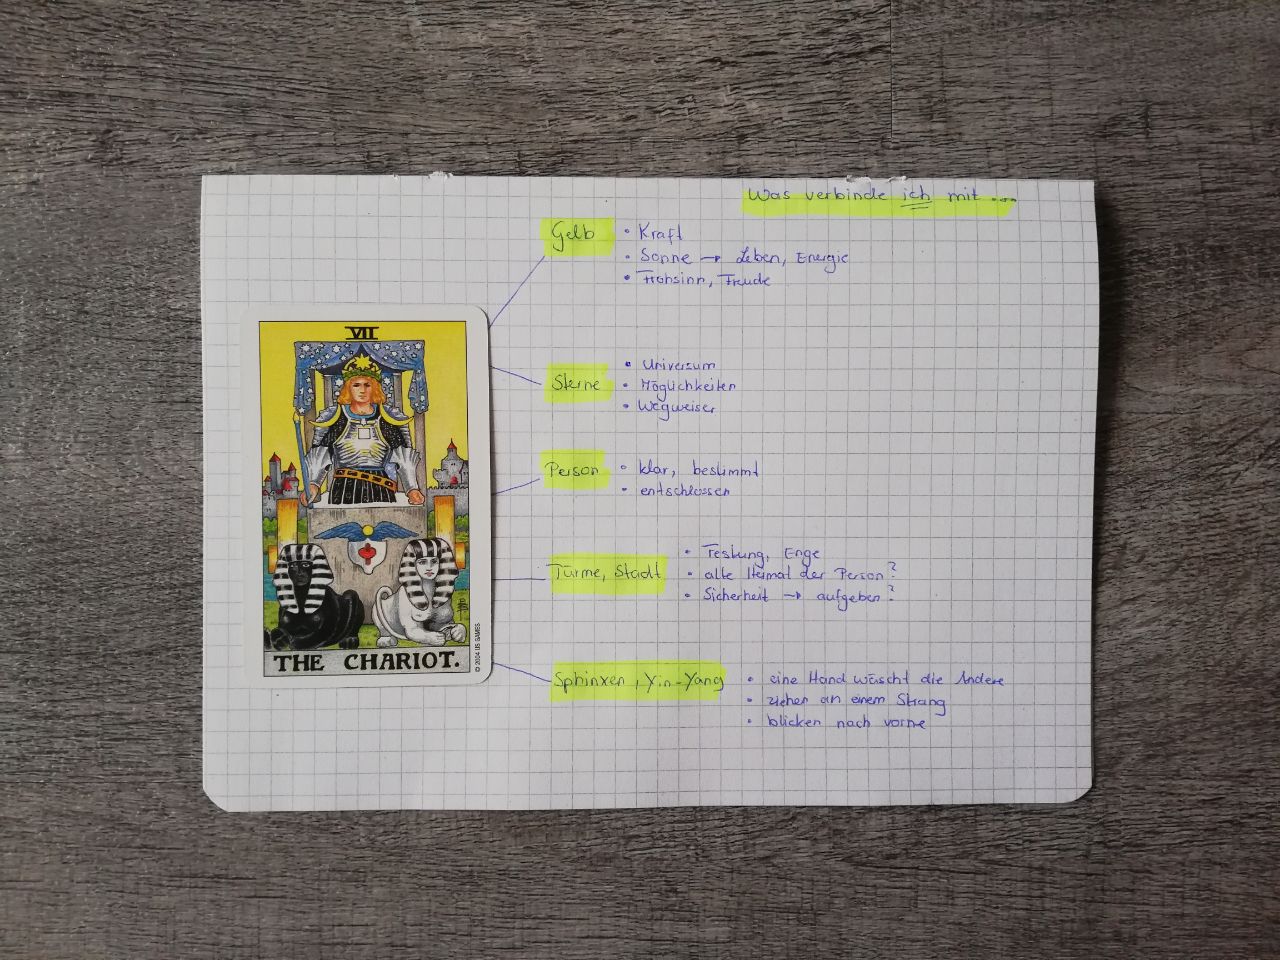 Was verbinde ich mit ...
Gelb
• Kraft
• Sonne → Leben, Energie
• Frohsinn, Freude
VII
THE CHARIOT.
© 2004 US GAMES
Sterne
• Universum
• Möglichkeiten
• Wegweiser
Person
• klar, bestimmt
• entschlossen
Türme, Stadt
• Festung, Enge
• alte Heimat der Person?
• Sicherheit → aufgeben?
Sphinxen, Yin-Yang
• eine Hand wäscht die Andere
• ziehen an einem Strang
• blicken nach vorne